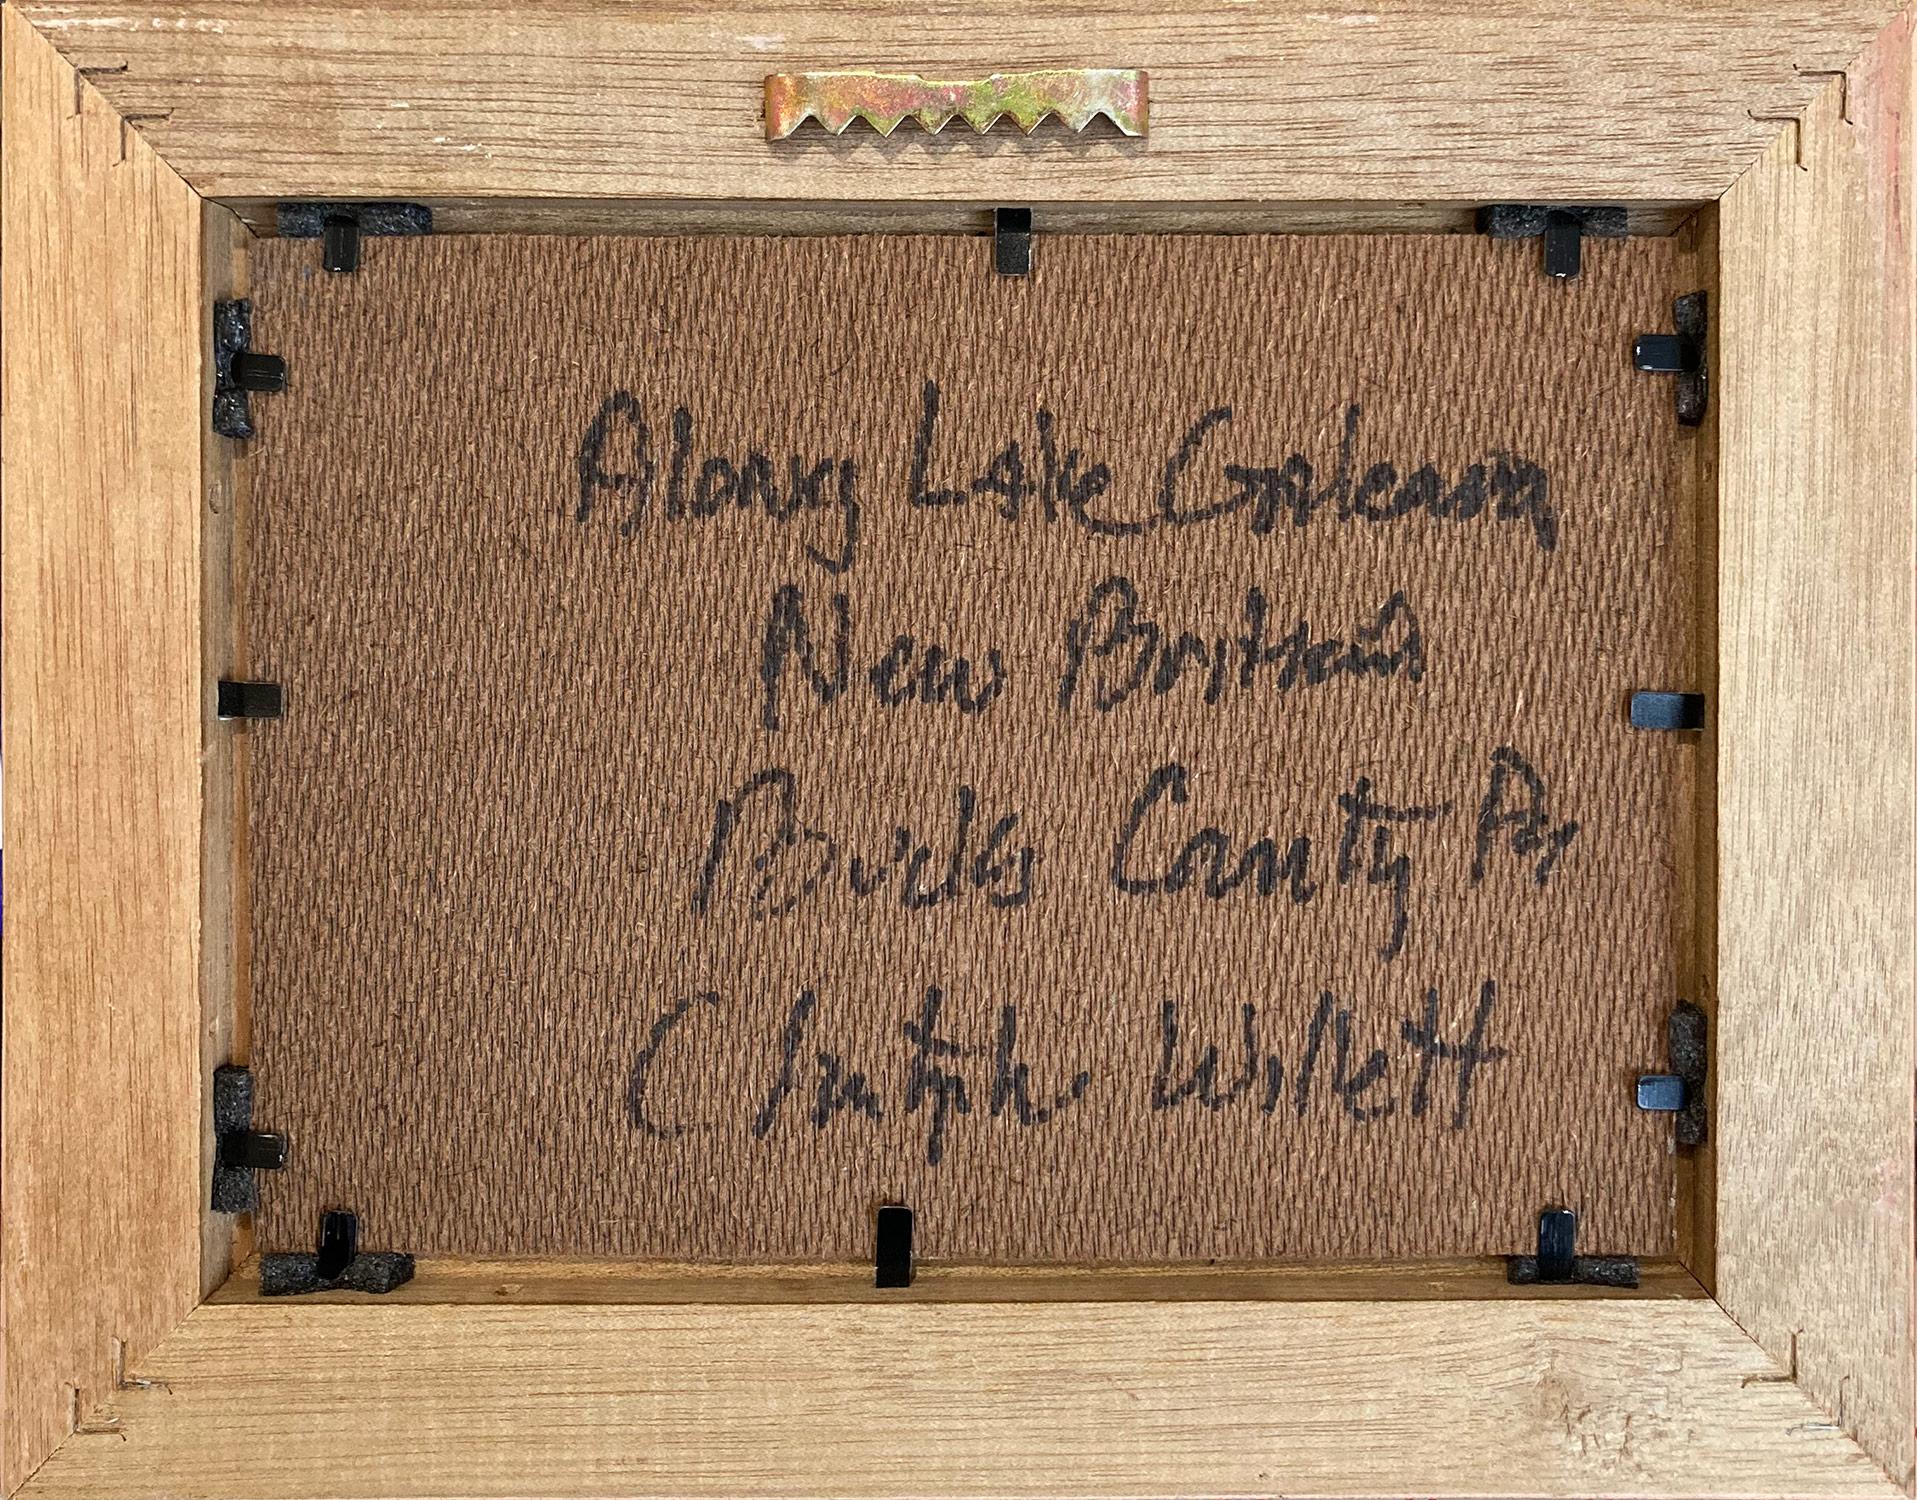 Along Lake Galena
New Britain
Bucks County Pa
Christopher Willett